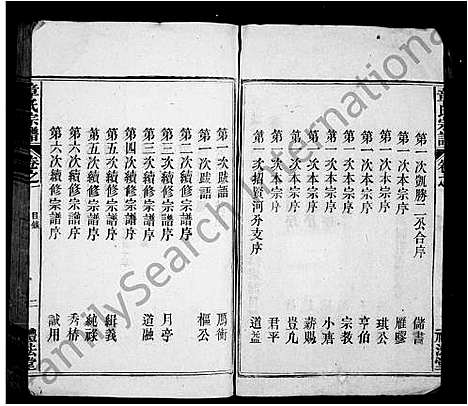 第一次凱勝二公合序 儲書
第一次本宗序 雁膠
第一次本宗序 琪公
第一次本宗序 亨伯
第一次本宗序 宗教
第一次本宗序 小唐
第一次本宗序 錫賜
第一次本宗序 豈凡
第一次本宗序 君平
第一次招賢河分支序 道益
第一次跋語 鴈衡
第一次跋語 樞公
第二次續修宗譜序
第三次續修宗譜序 月亭
第四次續修宗譜序 道融
第五次續修宗譜序 緝義
第五次續修宗譜序 純祿
第六次續修宗譜序 秀橋
第六次續修宗譜序 誠用
章氏宗譜
卷之一
目錄
二
禮法堂
FamilySearch International